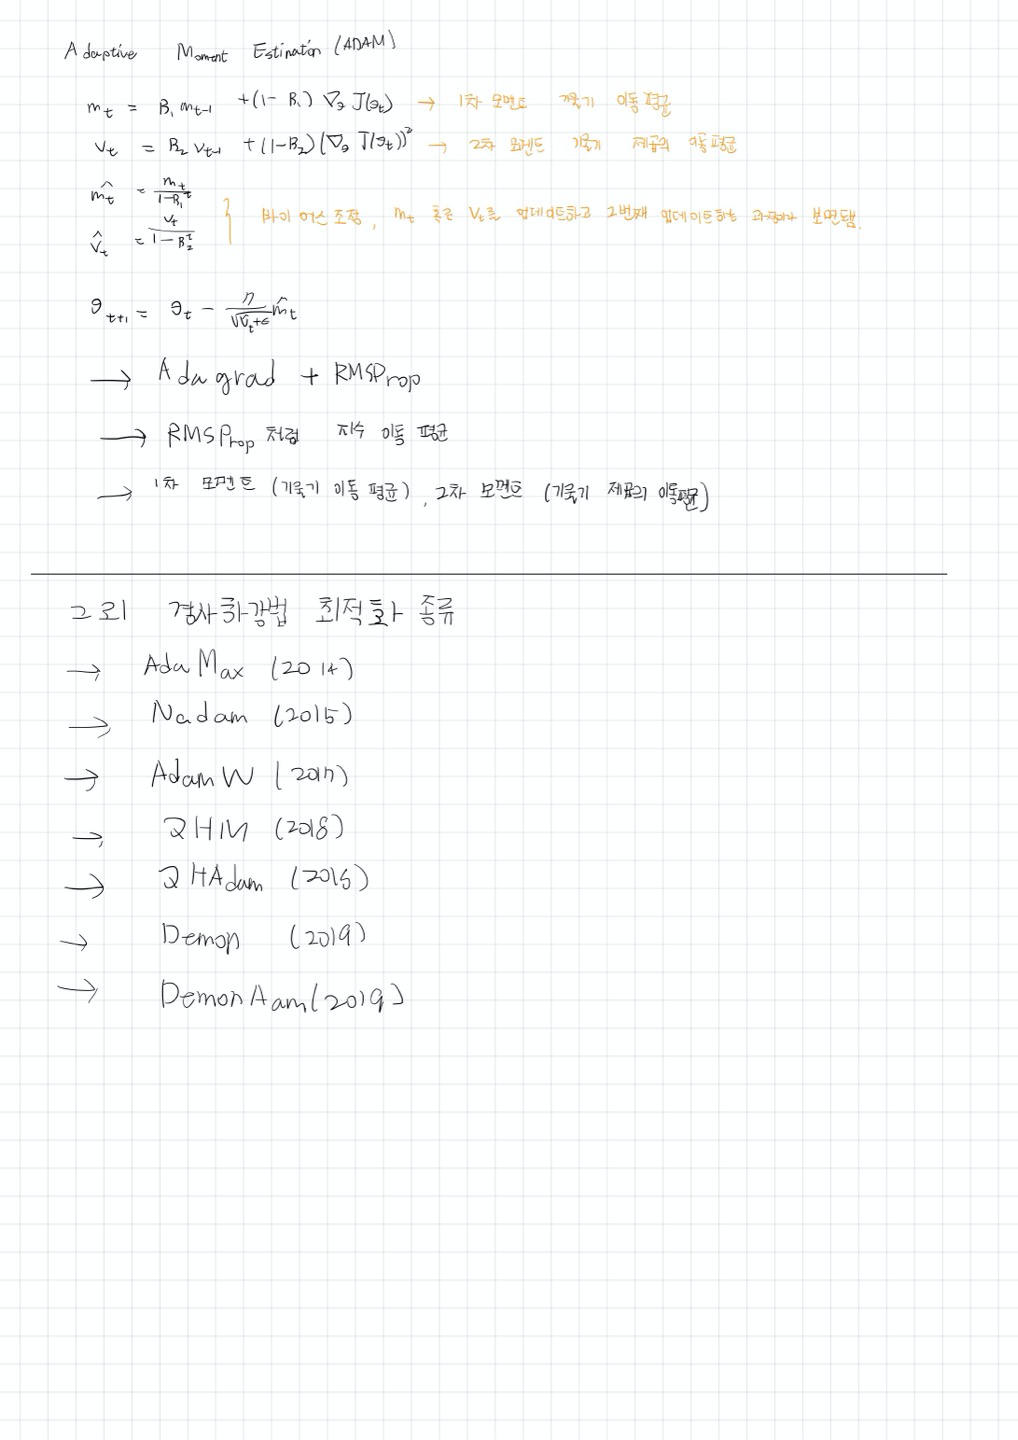 Adaptive Moment Estimation (ADAM)
m_t = B_1 m_{t-1} + (1 - B_1) ∇_θ J(θ_t) → 1차 모멘트 기울기 이동 평균
v_t = B_2 v_{t-1} + (1-B_2)(∇_θ J(θ_t))² → 2차 모멘트 기울기 제곱의 이동 평균
m̂_t = m_t / (1-B_1^t)
v̂_t = v_t / (1-B_2^t)
} 바이어스 조정, m_t 혹은 V_t를 업데이트하고 2번째 업데이트하는 과정이라 보면됨.
θ_{t+1} = θ_t - η / √(v̂_t+ε) m̂_t
→ Adagrad + RMSProp
→ RMSProp 처럼 지수 이동 평균
→ 1차 모멘트 (기울기 이동 평균), 2차 모멘트 (기울기 제곱의 이동평균)
그 외 경사하강법 최적화 종류
→ AdaMax (2014)
→ Nadam (2015)
→ AdamW (2017)
→ QHM (2018)
→ QHAdam (2018)
→ Demon (2019)
→ DemonAam (2019)